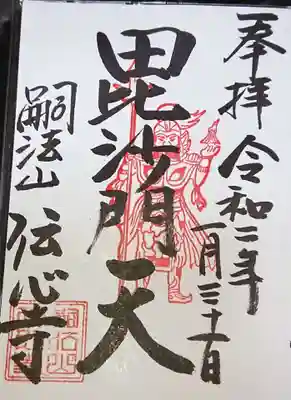 奉拝 令和二年
一月三十一日
毘沙門天
嗣法山
伝心寺